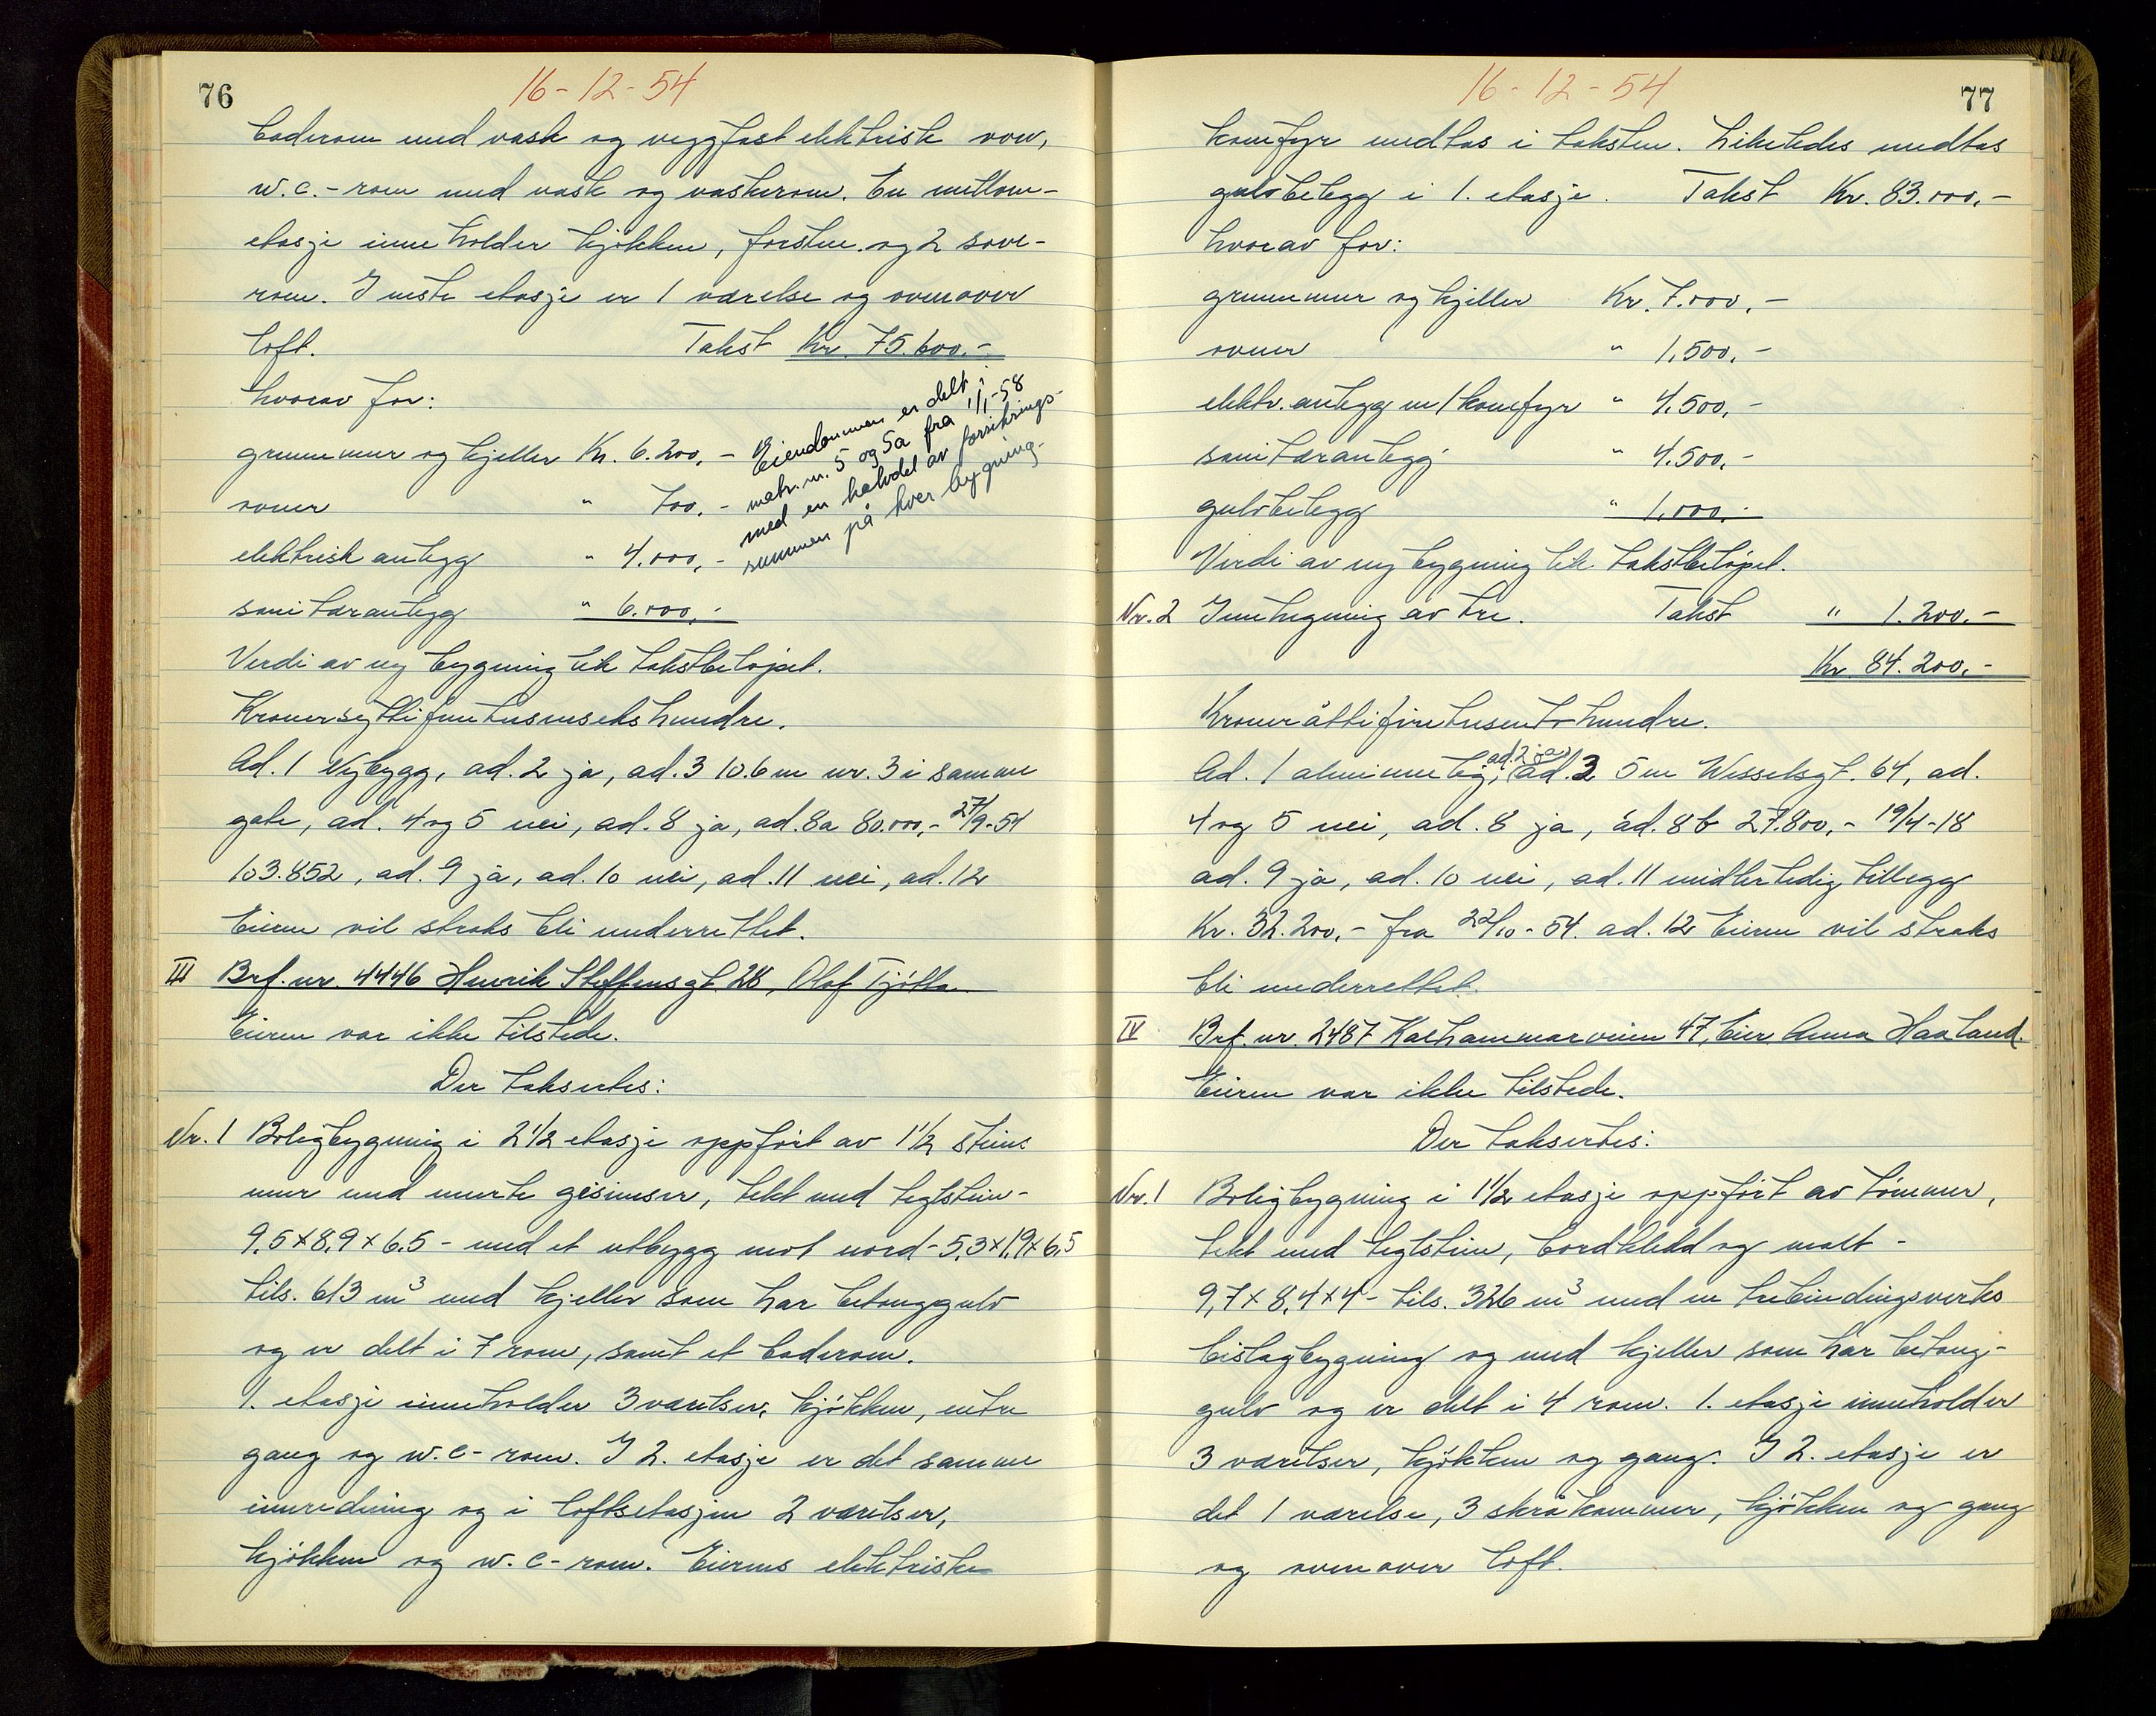 76
16-12-54
baderom med vask og veggfast elektrisk ovn,
w.c.-rom med vask og vaskerom. En mellom-
etasje inneholder kjøkken, forstue og 2 sove-
rom. I neste etasje er 1 værelse og ovenover
loft. Takst Kr. 75.600.-
hvorav for:
grunnmur og kjeller Kr. 6.200,-
ovner " 700.-
elektrisk anlegg " 4.000,-
sanitæranlegg " 6.000,-
Eiendommen er delt i
matr. nr. 5 og 5a fra 1/1-58
med en halvdel av forsikrings-
summen på hver bygning.
Verdi av ny bygning lik takstbeløpet.
Kroner syttifemtusenseks hundre.
Ad. 1 Nybygg, ad. 2 ja, ad. 3 10.6 m nr. 3 i samme
gate, ad. 4 og 5 nei, ad. 8 ja, ad. 8a 80.000,- 27/9-54
103.852, ad. 9 ja, ad. 10 nei, ad. 11 nei, ad. 12
Eieren vil straks bli underrettet.
III Brf. nr. 4446 Henrik Steffensgt. 28, Olaf Tjøtta.
Eieren var ikke tilstede.
Der taksertes:
Nr. 1 Boligbygning i 2 1/2 etasje oppført av 1 1/2 steins
mur med murte gesimser, tekt med teglstein-
9,5 x 8,9 x 6.5 - med et utbygg mot nord - 5,3 x 1,9 x 6,5
tils. 613 m3 med kjeller som har betonggulv
og er delt i 7 rom, samt et baderom.
1. etasje inneholder 3 værelser, kjøkken, entre
gang og w.c-rom. I 2. etasje er det samme
innredning og i loftsetasjen 2 værelser,
kjøkken og w.c-rom. Eierens elektriske
77
16-12-54
komfyr medtas i taksten. Likeledes medtas
gulvbelegg i 1. etasje. Takst Kr. 83.000,-
hvorav for:
grunnmur og kjeller Kr. 7.000,-
ovner " 1.500,-
elektr. anlegg m/komfyr " 4.500,-
sanitæranlegg " 4.500,-
gulvbelegg " 1.000.-
Verdi av ny bygning lik takstbeløpet.
Nr. 2 Innhegning av tre. Takst " 1.200.-
Kr. 84.200,-
Kroner åttifiretusento hundre.
ad. 2 ja
Ad. 1 alminnelig, ad. 3 5 m Wesselsgt. 64, ad.
4 og 5 nei, ad. 8 ja, ad. 8b 27.800,- 19/4-18
ad. 9 ja, ad. 10 nei, ad. 11 midlertidig tillegg
Kr. 32.200,- fra 22/10-54. ad. 12 Eieren vil straks
bli underrettet.
IV Brf. nr. 2487 Kalhammarveien 47, Eier Anna Haaland.
Eieren var ikke tilstede.
Der taksertes:
Nr. 1 Boligbygning i 1 1/2 etasje oppført av tømmer,
tekt med teglstein, bordkledd og malt -
9,7 x 8,4 x 4 - tils. 326 m3 med en trebindingsverks
bislagbygning og med kjeller som har betong-
gulv og er delt i 4 rom. 1. etasje inneholder
3 værelser, kjøkken og gang. I 2. etasje er
det 1 værelse, 3 skråkammer, kjøkken og gang
og ovenover loft.